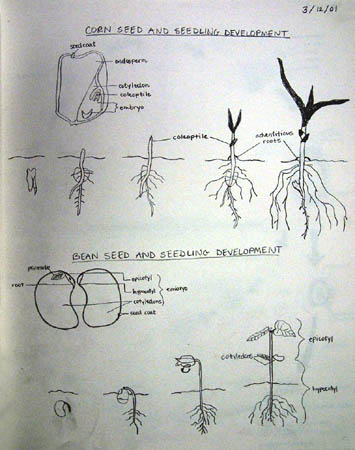 3/12/01
CORN SEED AND SEEDLING DEVELOPMENT
seed coat
endosperm
cotyledon
coleoptile
embryo
coleoptile
adventitious
roots
BEAN SEED AND SEEDLING DEVELOPMENT
plumule
root
epicotyl
hypocotyl
embryo
cotyledons
seed coat
epicotyl
cotyledons
hypocotyl